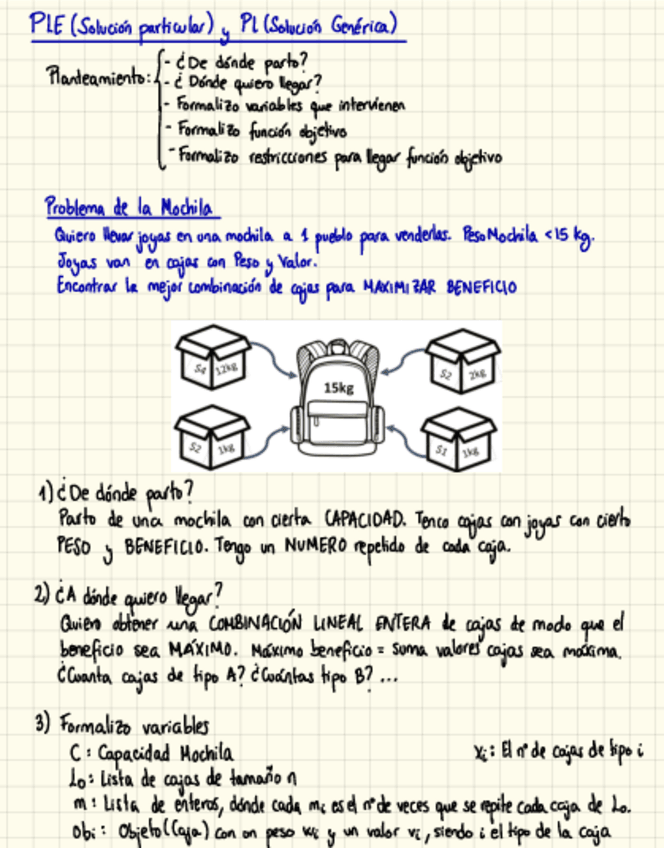 PLE (Solución particular) y PL (Solución Genérica)
Planteamiento:
- ¿De dónde parto?
- ¿Dónde quiero llegar?
- Formalizo variables que intervienen
- Formalizo función objetivo
- Formalizo restricciones para llegar función objetivo
Problema de la Mochila
Quiero llevar joyas en una mochila a 1 pueblo para venderlas. Peso Mochila <15 kg.
Joyas van en cajas con Peso y Valor.
Encontrar la mejor combinación de cajas para MAXIMIZAR BENEFICIO
$4 12kg
15kg
$2 2kg
$2 1kg
$1 1kg
1) ¿De dónde parto?
Parto de una mochila con cierta CAPACIDAD. Tengo cajas con joyas con cierto
PESO y BENEFICIO. Tengo un NUMERO repetido de cada caja.
2) ¿A dónde quiero llegar?
Quiero obtener una COMBINACIÓN LINEAL ENTERA de cajas de modo que el
beneficio sea MÁXIMO. Máximo beneficio = suma valores cajas sea máxima.
¿Cuanta cajas de tipo A? ¿Cuántas tipo B? ...
3) Formalizo variables
C : Capacidad Mochila
xi : El nº de cajas de tipo i
Lo : Lista de cajas de tamaño n
m : Lista de enteros, dónde cada mi es el nº de veces que se repite cada caja de Lo.
Obi : Objeto (Caja) con un peso wi y un valor vi, siendo i el tipo de la caja